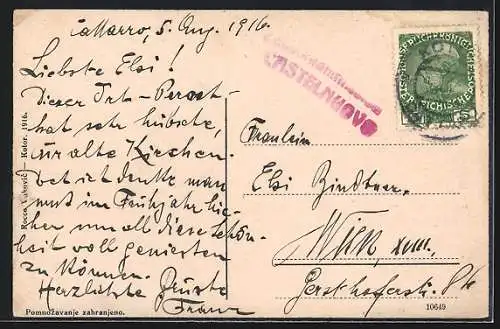 Cattarro, 5. Aug. 1916.
Liebste Elsi!
Dieser Ort - Perast
hat sehr hübsche,
uralte Kirchen.
ich denke man
muß im Frühjahr hie-
her um all diese Schön-
heit voll genießen
zu können.
Herzlichste Grüße
Franz
Rocco Vuković — Kotor. 1916.
Pomnožavanje zabranjeno.
CASTELNUOVO
Fräulein
Elsi Bindtner
Wien, XVIII.
Gersthoferstr.
10649